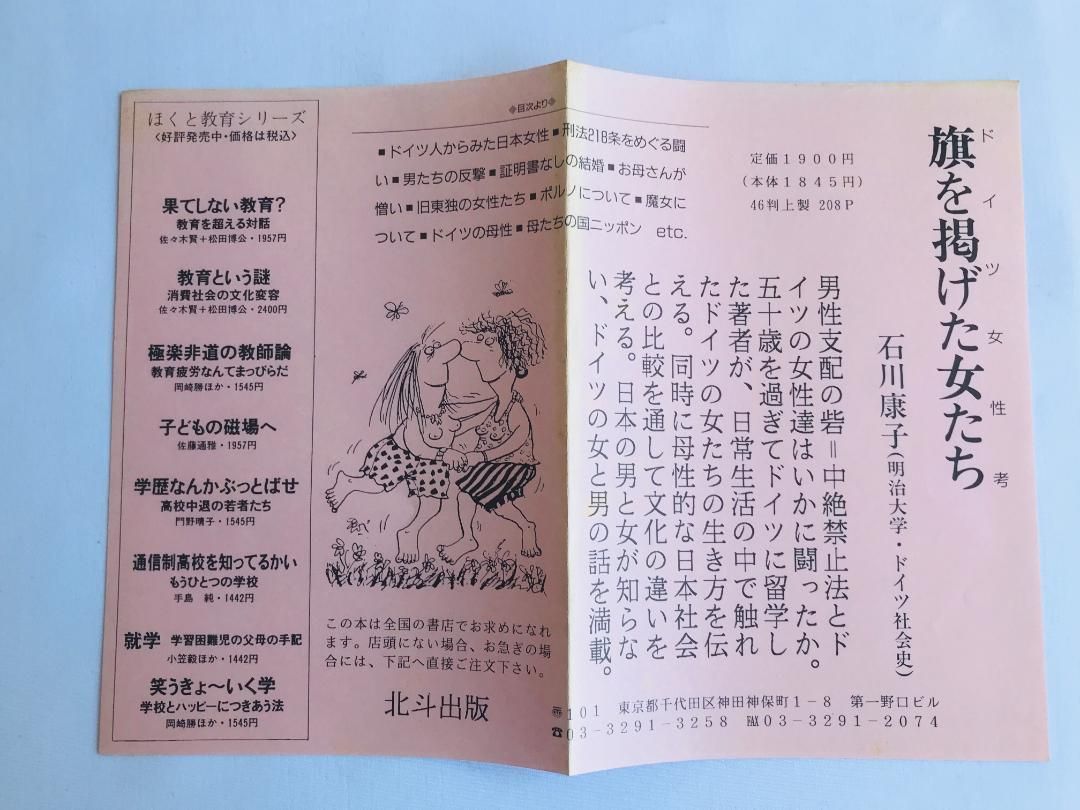 ほくと教育シリーズ
〈好評発売中・価格は税込〉
果てしない教育?
教育を超える対話
佐々木賢+松田博公・1957円
教育という謎
消費社会の文化変容
佐々木賢+松田博公・2400円
極楽非道の教師論
教育疲労なんてまっぴらだ
岡崎勝ほか・1545円
子どもの磁場へ
佐藤通雅・1957円
学歴なんかぶっとばせ
高校中退の若者たち
門野晴子・1545円
通信制高校を知ってるかい
もうひとつの学校
手島 純・1442円
就学 学習困難児の父母の手記
小笠毅ほか・1442円
笑うきょ〜いく学
学校とハッピーにつきあう法
岡崎勝ほか・1545円
◆目次より◆
■ドイツ人からみた日本女性■刑法218条をめぐる闘
い■男たちの反撃■証明書なしの結婚■お母さんが
憎い■旧東独の女性たち■ポルノについて■魔女に
ついて■ドイツの母性■母たちの国ニッポン etc.
この本は全国の書店でお求めになれ
ます。店頭にない場合、お急ぎの場
合には、下記へ直接ご注文下さい。
北斗出版
〠101 東京都千代田区神田神保町1-8 第一野口ビル
☎03-3291-3258 FAX03-3291-2074
ドイツ女性考
旗を掲げた女たち
石川康子(明治大学・ドイツ社会史)
定価1900円
(本体1845円)
46判上製 208P
男性支配の砦=中絶禁止法とド
イツの女性達はいかに闘ったか。
五十歳を過ぎてドイツに留学し
た著者が、日常生活の中で触れ
たドイツの女たちの生き方を伝
える。同時に母性的な日本社会
との比較を通して文化の違いを
考える。日本の男と女が知らな
い、ドイツの女と男の話を満載。